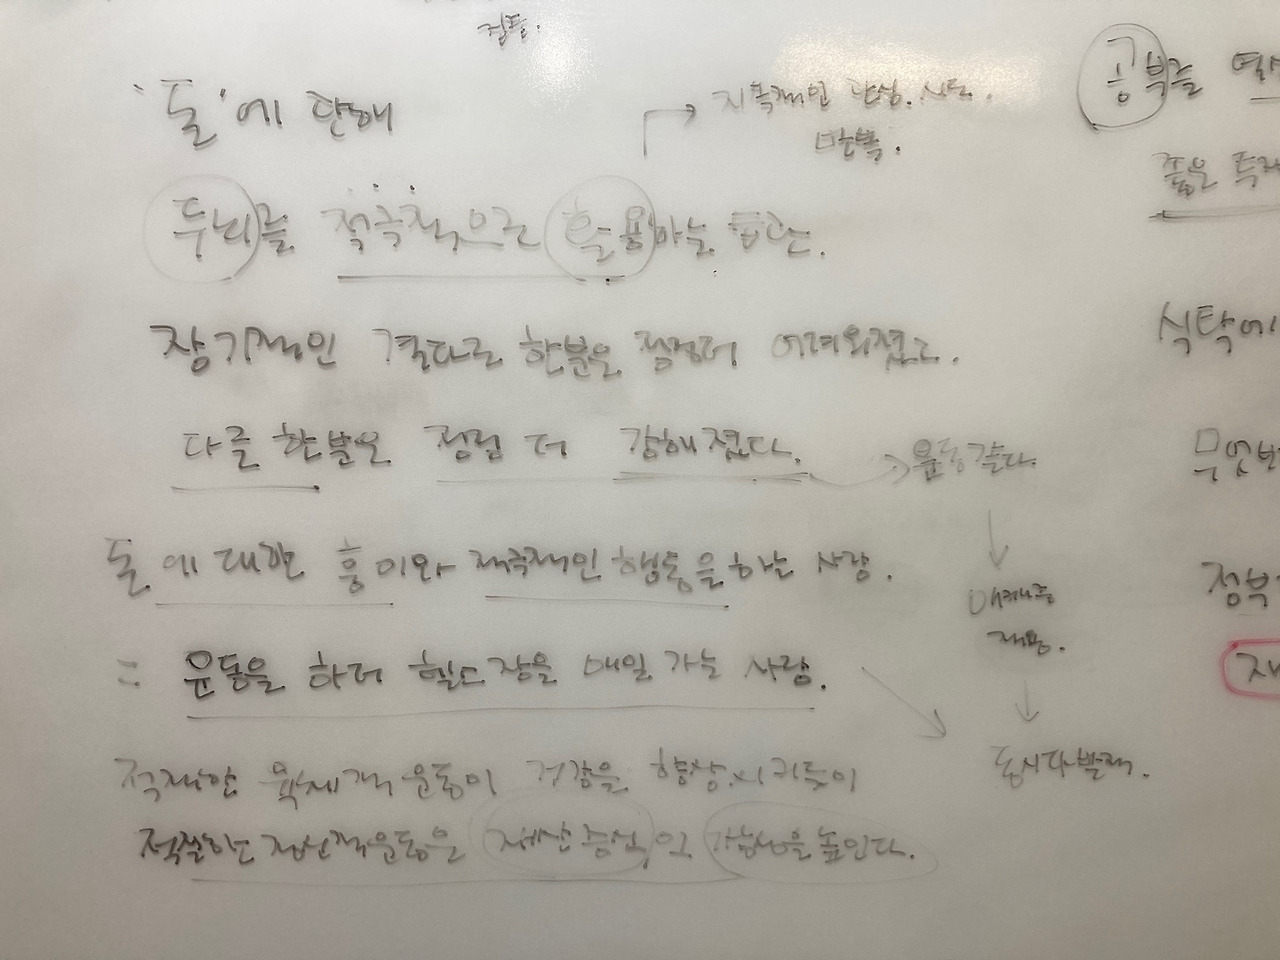 질문.
'돈'에 관해
지속적인 관심. 시도.
반복.
두뇌를 적극적으로 활용하는 습관.
장기적인 결과로 한분은 점점더 어려워졌고.
다른 한분은 점점 더 강해졌다.
운동같다.
돈에 대한 흥미와 적극적인 행동을 하는 사람.
= 운동을 하러 헬스장을 매일 가는 사람.
적용.
동시다발적.
적절한 육체적 운동이 건강을 향상시키듯이
적절한 정신적 운동은 재산 증식의 가능성을 높인다.
공부를
좋은
식탁에
무엇보
정부